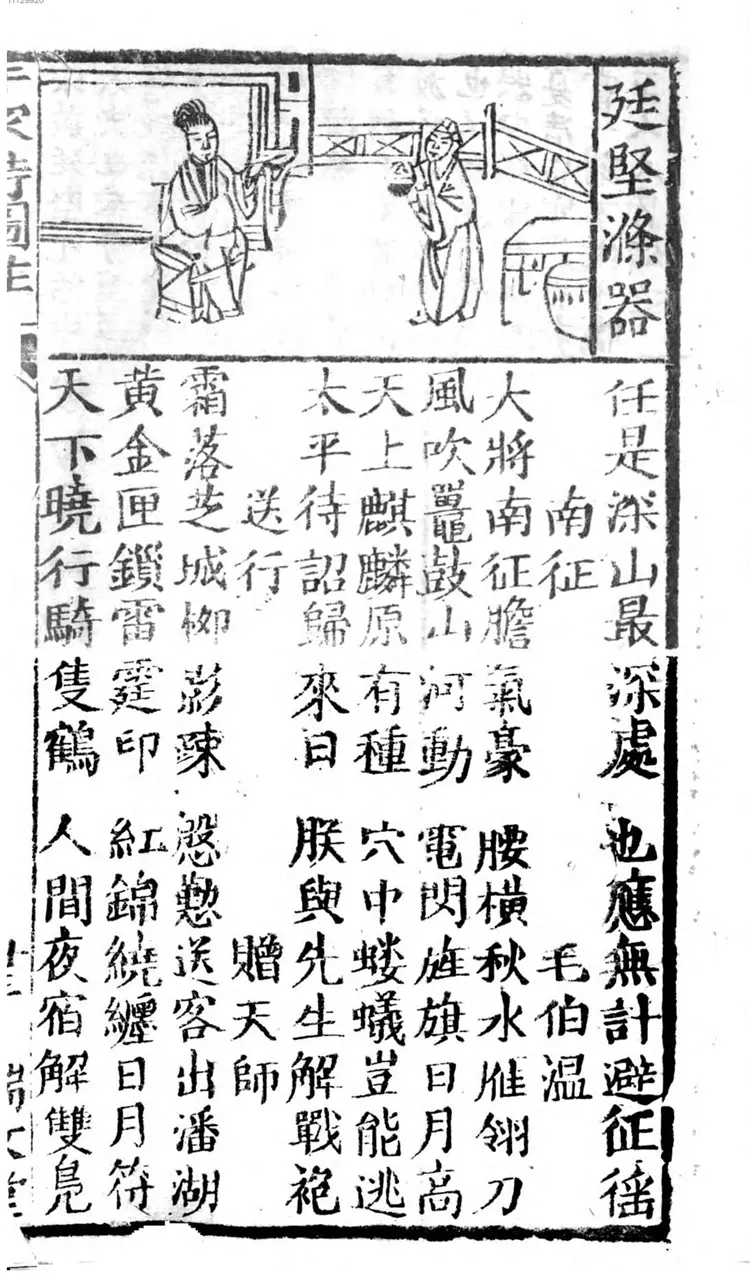 廷堅滌器
任是深山最深處　也應無計避征徭
南征　毛伯温
大將南征膽氣豪　腰橫秋水雁翎刀
風吹鼉鼓山河動　電閃旌旗日月高
天上麒麟原有種　穴中螻蟻豈能逃
太平待詔歸來日　朕與先生解戰袍
送行　贈天師
霜落芝城柳影踈　慇懃送客出潘湖
黃金匣鎖雷霆印　紅錦繞纏日月符
天下曉行騎隻鶴　人間夜宿解雙鳧
千家詩圖註